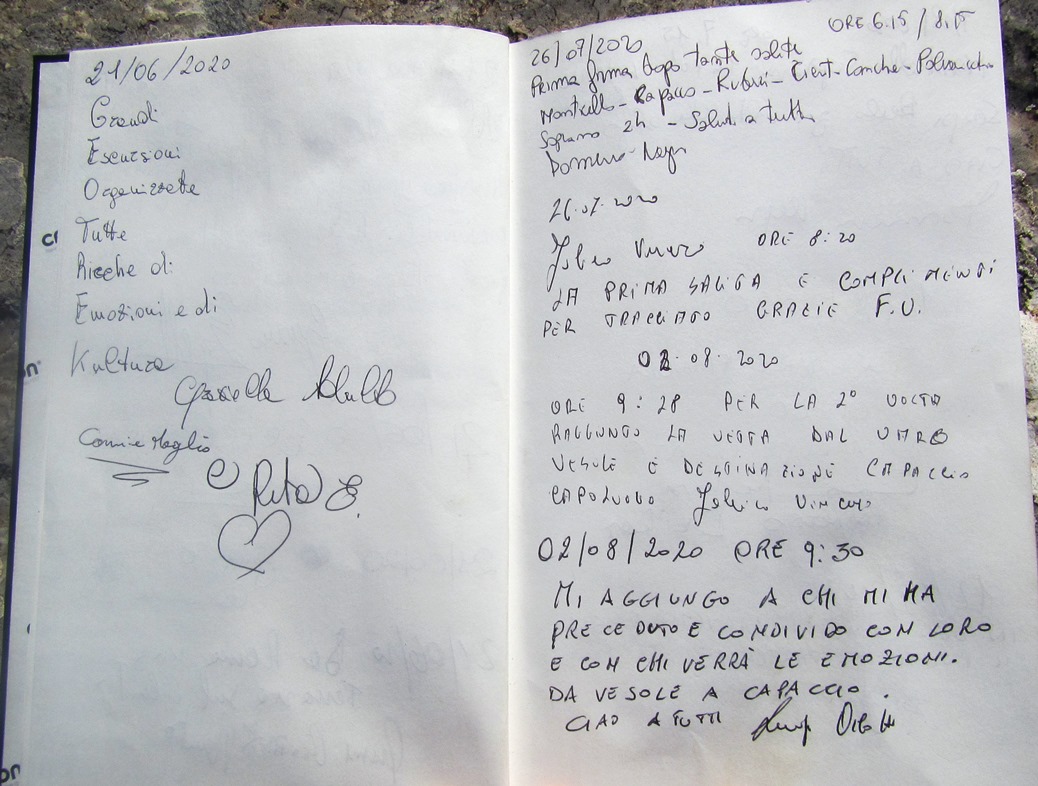 21/06/2020
Grandi
Escursioni
Organizzate
Tutte
Ricche di
Emozioni e di
Kultura
Graziella
e Rita E.
26/07/2020 ORE 6.15 / 8.15
Prima firma dopo tante salite
Monticello - Rapacco - - Conche -
Soprano 2h - Saluti a tutti
26.07.2020
ORE 8:20
LA PRIMA SALITA E COMPLIMENTI
PER TRACCIATO GRAZIE F.V.
02.08.2020
ORE 9:28 PER LA 2° VOLTA
RAGGIUNGO LA VETTA DAL
VESOLE E DESTINAZIONE CAPACCIO
CAPOLUOGO
02/08/2020 ORE 9:30
MI AGGIUNGO A CHI MI HA
PRECEDUTO E CONDIVIDO CON LORO
E CON CHI VERRÀ LE EMOZIONI.
DA VESOLE A CAPACCIO.
CIAO A TUTTI